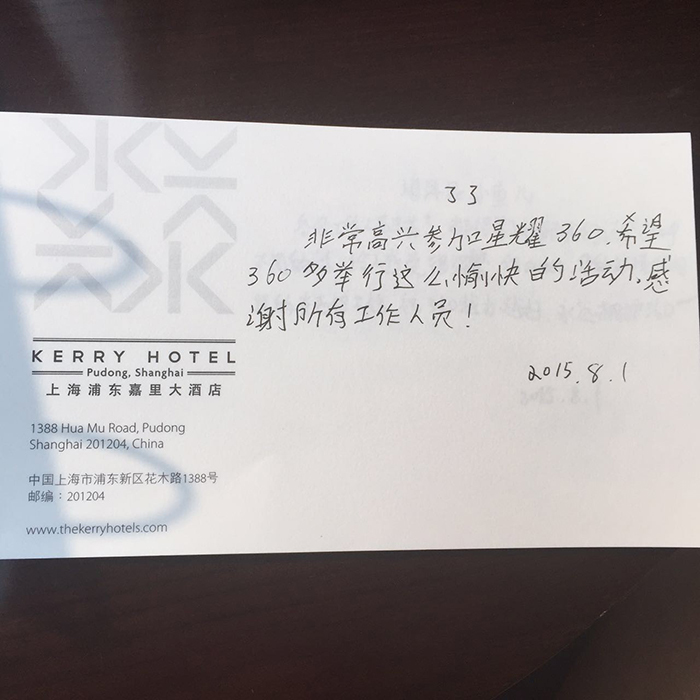 33
非常高兴参加星耀360.希望
360多举行这么愉快的活动。感
谢所有工作人员!
2015.8.1
KERRY HOTEL
Pudong, Shanghai
上海浦东嘉里大酒店
1388 Hua Mu Road, Pudong
Shanghai 201204, China
中国上海市浦东新区花木路1388号
邮编：201204
www.thekerryhotels.com